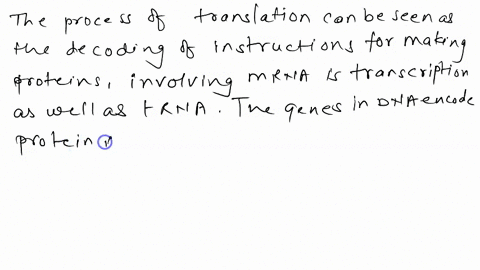 The process of translation can be seen as
the decoding of instructions for making
proteins, involving mRNA is transcription
as well as tRNA. The genes in DNA encode
protein